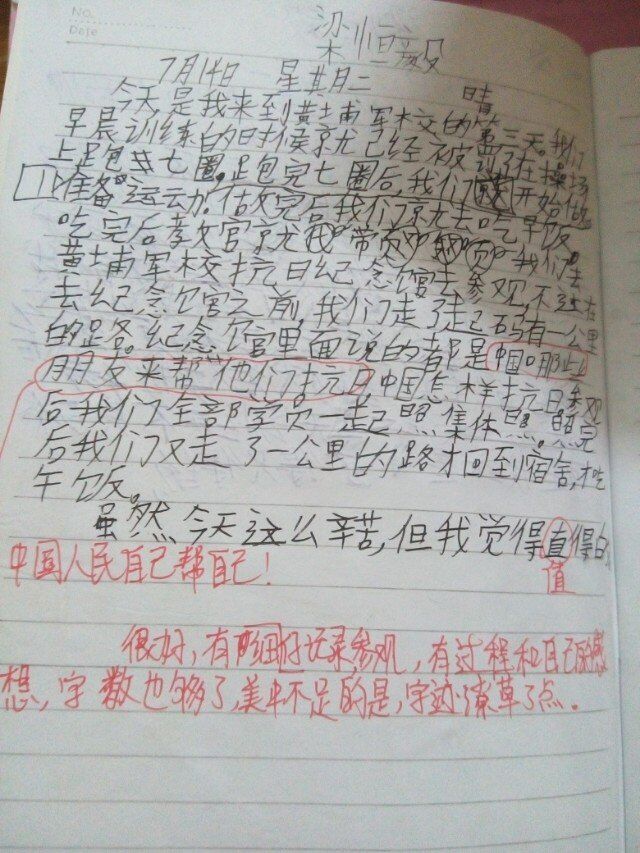 No.
Date
梁恒毅
7月14日 星其月二 晴
今天是我来到黄埔军校的第三天。我们
早晨训练的时候就已经被 在操场
上跑步七圈。跑完七圈后,我们 开始做
准备运动。做完后我们就去吃早饭。
吃完后教官就 带 我们去
黄埔军校抗日纪念馆去参观,不过在
去纪念馆之前,我们走了起码有一公里
的路。纪念馆里面说的都是中国哪些
朋友来帮他们抗日,中国怎样抗日。参观
后我们全部学员一起照集体照。照完
后我们又走了一公里的路才回到宿舍,才吃
午饭。
虽然今天这么辛苦,但我觉得直得的。
值
中国人民自己帮自己!
很好,有 记录参观,有过程和自己的感
想,字数也够了,美中不足的是,字迹潦草了点。